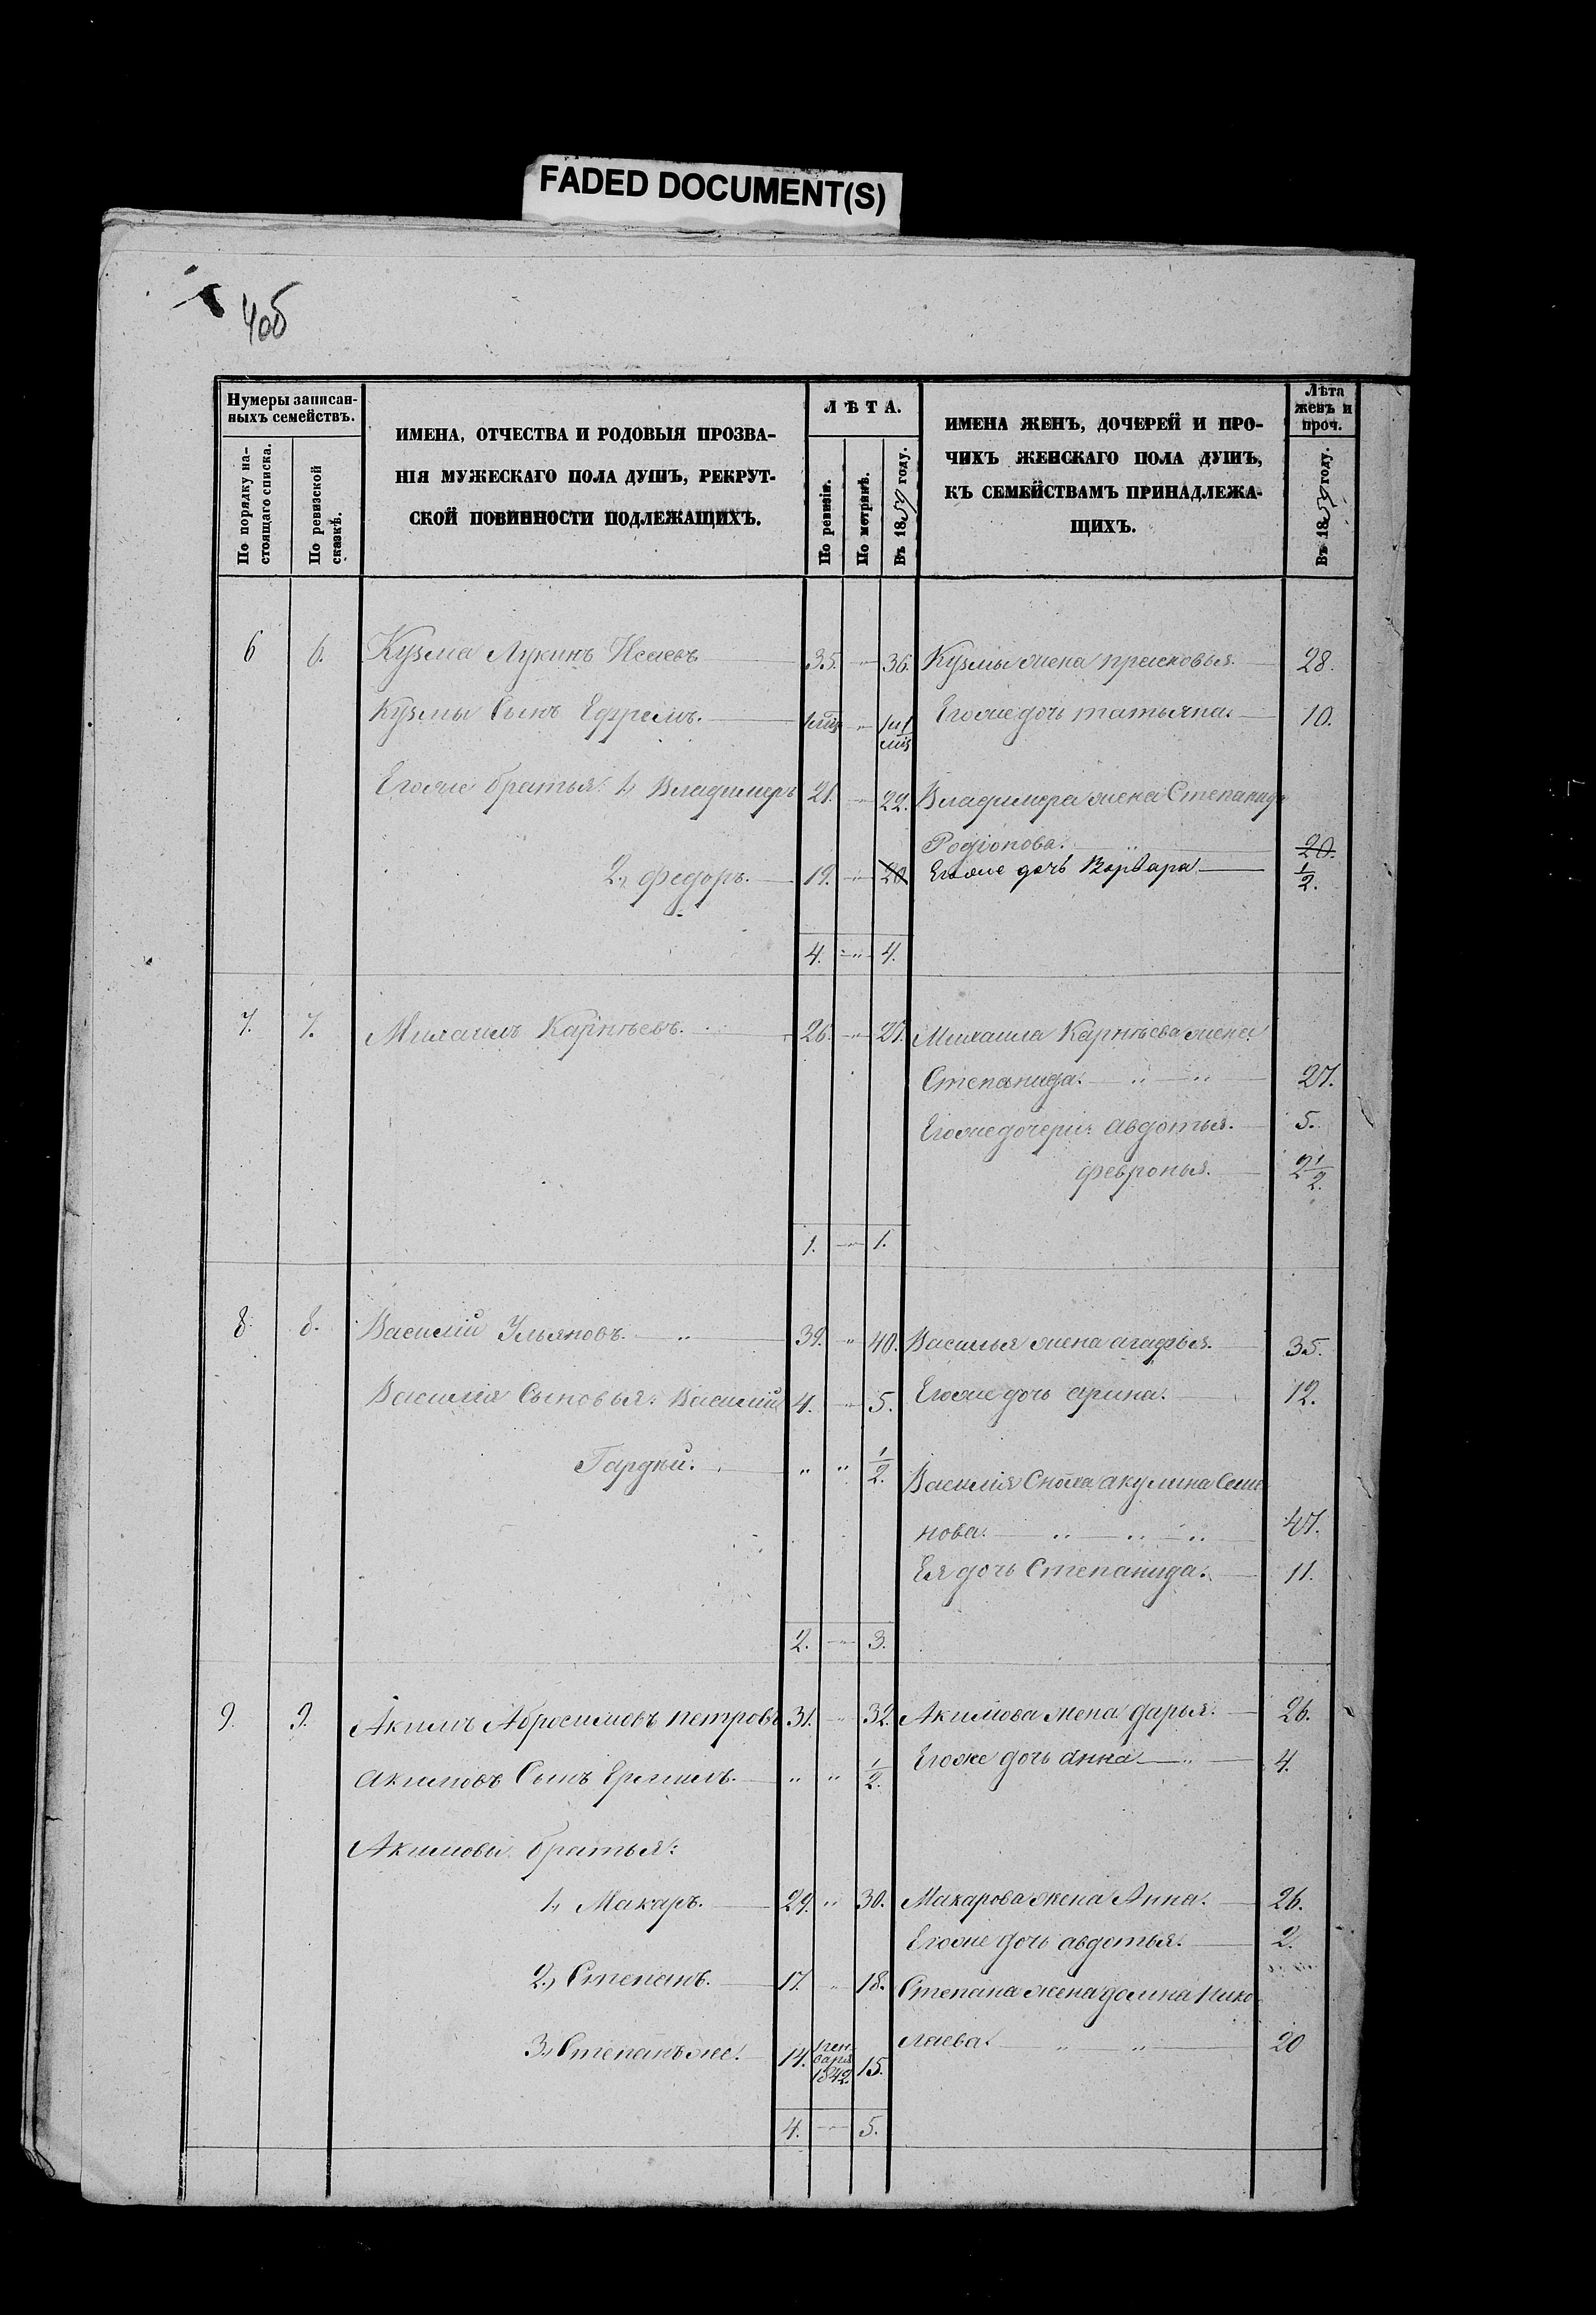 FADED DOCUMENT(S)
4об
Нумеры записан-
ныхъ семействъ.
По порядку на-
стоящаго списка.
По ревизской
сказкѣ.
ИМЕНА, ОТЧЕСТВА И РОДОВЫЯ ПРОЗВА-
НІЯ МУЖЕСКАГО ПОЛА ДУШЪ, РЕКРУТ-
СКОЙ ПОВИННОСТИ ПОДЛЕЖАЩИХЪ.
ЛѢТА.
По ревизіи.
По метрикѣ.
Въ 1859 году.
ИМЕНА ЖЕНЪ, ДОЧЕРЕЙ И ПРО-
ЧИХЪ ЖЕНСКАГО ПОЛА ДУШЪ,
КЪ СЕМЕЙСТВАМЪ ПРИНАДЛЕЖА-
ЩИХЪ.
Лѣта
женъ и
проч.
Въ 1859 году.
6 6. Кузма Лукинъ Исаевъ 35. " 36. Кузмы жена прасковья. 28.
Кузмы Сынъ Ефремъ. " Егоже дочь татьяна. 10.
Егоже братья: 1, Владимеръ 21. " 22. Владимера жена Степанида
Родіонова. " 20.
2, федоръ. 19. " 20 Егоже дочь Варвара 1/2.
4. " 4.
7. 7. Михаилъ Карнѣевъ. 26. " 27. Михаила Карнѣева жена
Степанида. " " 27.
Егоже дочери: авдотья. 5.
февронья. 2 1/2.
1. " 1.
8. 8. Василій Ульяновъ. " 39. " 40. Василья жена агафья. 35.
Василія Сыновья: Василій 4. " 5. Егоже дочь арина. 12.
Гардѣй. " " 1/2.
Василія Сноха акулина Семе
нова. " " " 47.
Ея дочь Степанида. 11.
2. " 3.
9. 9. Акимъ Абросимовъ петровъ 31. " 32. Акимова жена дарья. 26.
Акимовъ Сынъ Ермилъ. " " 1/2. Егоже дочь анна " 4.
Акимовы братья:
1, Макаръ. 29. " 30. Макарова жена Анна. 26.
Егоже дочь авдотья. 2.
2, Степанъ. 17. " 18. Степана жена домна Нико
лаева. " " 20
3, Степанъ же. 14. Ген
варя
1842. 15.
4. " 5.